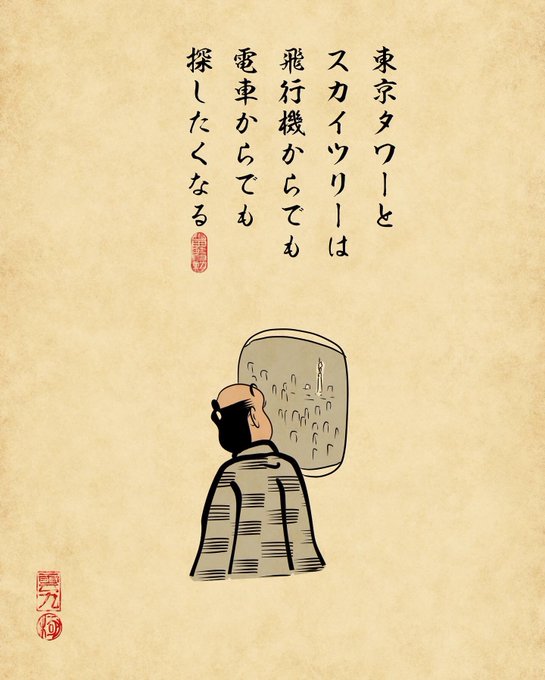 東京タワーと
スカイツリーは
飛行機からでも
電車からでも
探したくなる